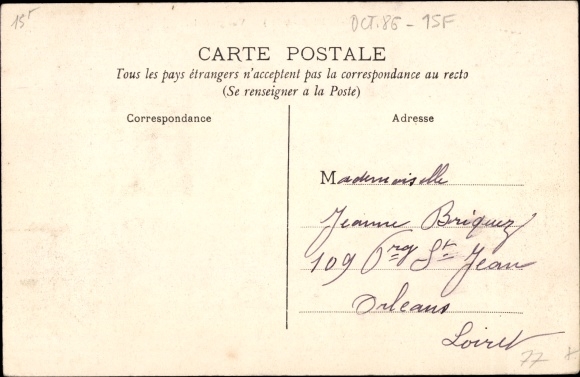 15F
OCT.86 - 15F
CARTE POSTALE
Tous les pays étrangers n'acceptent pas la correspondance au recto
(Se renseigner a la Poste)
Correspondance
Adresse
Mademoiselle
Jeanne Briquez
109 Frg St Jean
Orleans
Loiret
77